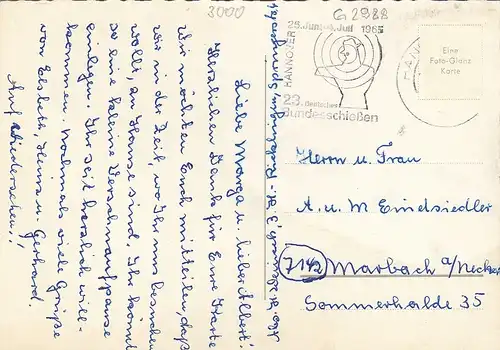 3000
G 2988
25. Juni - 4. Juli 1965
HANNOVER
23. deutsches
Bundesschießen
Eine
Foto-Glanz
Karte
Liebe Marga u. lieber Albert!
Herzlichen Dank für Eure Karte
Wir möchten Euch mitteilen, daß
wir in der Zeit, wo Ihr uns besuchen
wollt, zu Hause sind. Ihr könnt
so eine kleine Verschnaufpause
einlegen. Ihr seit herzlich will-
kommen. Nochmals viele Grüße
von Elsbeth, Heinz u. Gerhard.
Auf Wiedersehen!!
Herrn u. Frau
A. u. M Eindsiedler
7142 Marbach a/Neckar
Sommerhalde 35